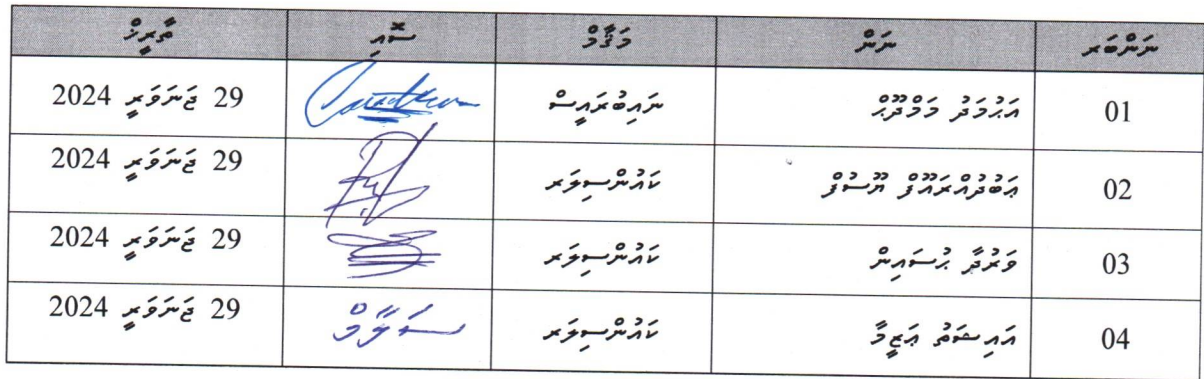 ނަންބަރު ނަން މަޤާމް ސޮއި ތާރީޚް
01 އަޙުމަދު މަމްދޫޙް ނައިބުރައީސް 29 ޖަނަވަރީ 2024
02 ޢަބްދުއްރައޫފް ޔޫސުފް ކައުންސިލަރ 29 ޖަނަވަރީ 2024
03 ވަރުދާ ޙުސައިން ކައުންސިލަރ 29 ޖަނަވަރީ 2024
04 އައިޝަތު ޢަޒީމާ ކައުންސިލަރ 29 ޖަނަވަރީ 2024